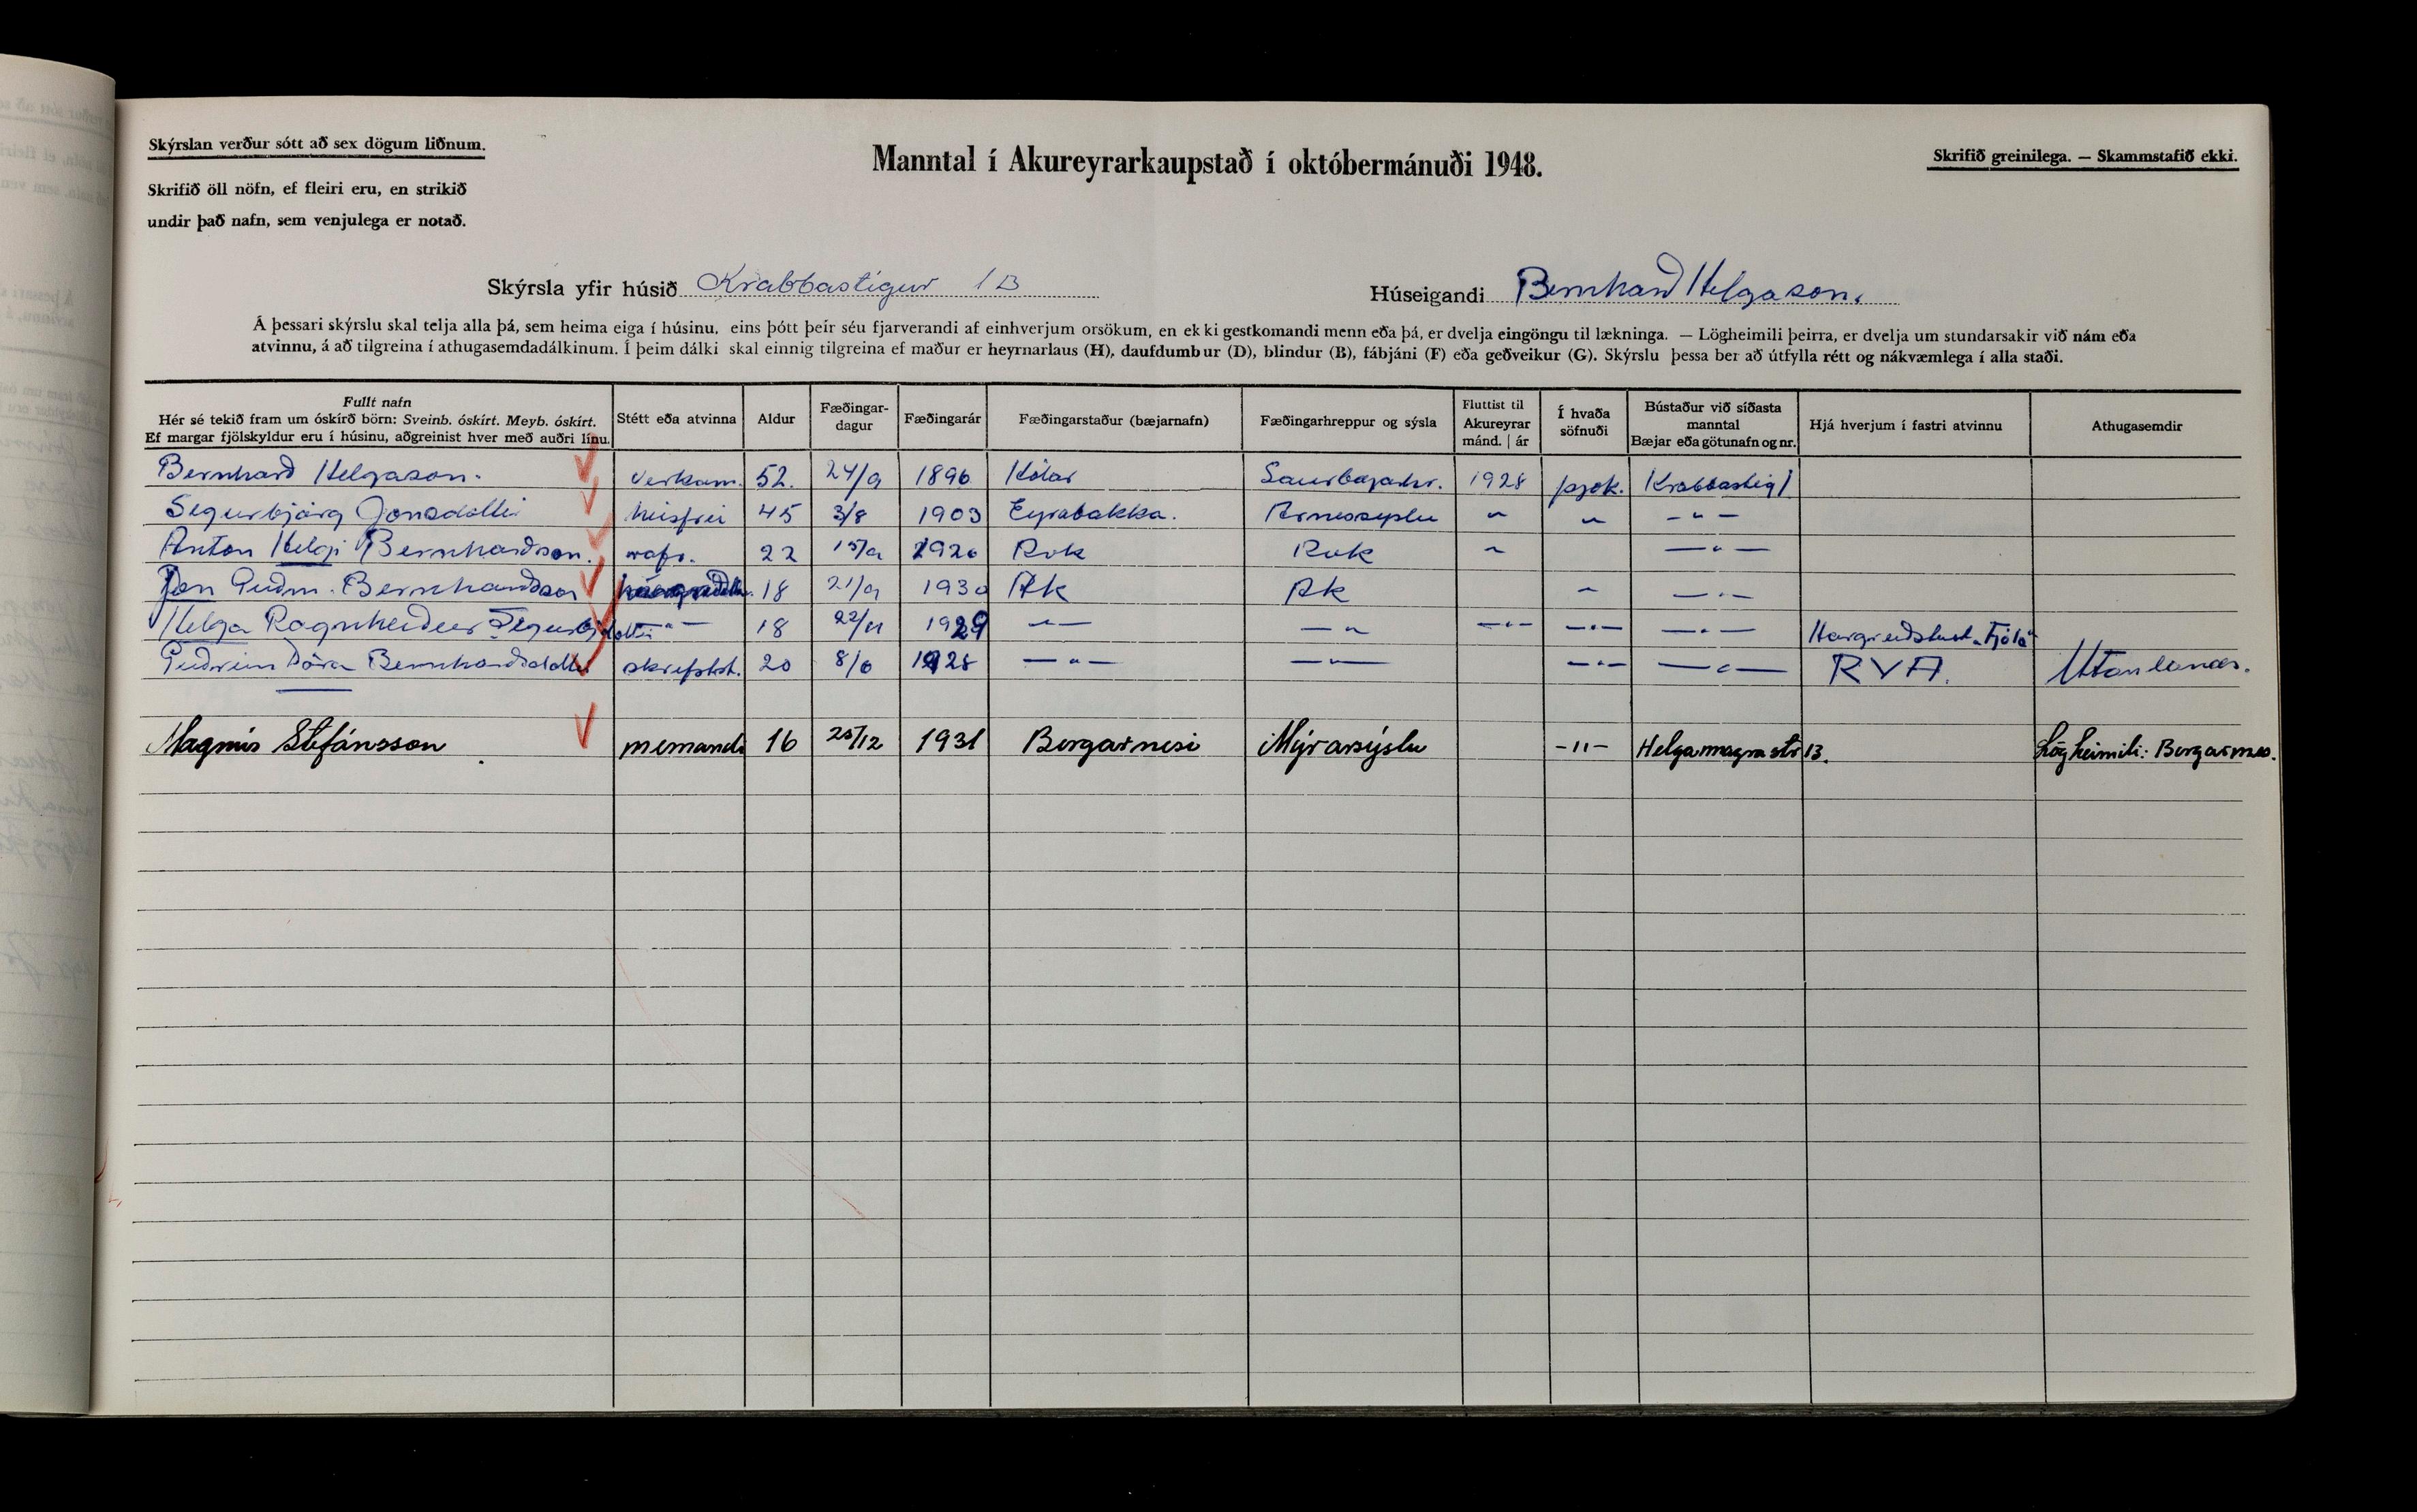 Skýrslan verður sótt að sex dögum liðnum.
Manntal í Akureyrarkaupstað í októbermánuði 1948.
Skrifið greinilega. — Skammstafið ekki.
Skrifið öll nöfn, ef fleiri eru, en strikið
undir það nafn, sem venjulega er notað.
Skýrsla yfir húsið Krabbastígur 1B
Húseigandi Bernharð Helgason.
Á þessari skýrslu skal telja alla þá, sem heima eiga í húsinu, eins þótt þeir séu fjarverandi af einhverjum orsökum, en ekki gestkomandi menn eða þá, er dvelja eingöngu til lækninga. — Lögheimili þeirra, er dvelja um stundarsakir við nám eða
atvinnu, á að tilgreina í athugasemdadálkinum. Í þeim dálki skal einnig tilgreina ef maður er heyrnarlaus (H), daufdumbur (D), blindur (B), fábjáni (F) eða geðveikur (G). Skýrslu þessa ber að útfylla rétt og nákvæmlega í alla staði.
Fullt nafn
Hér sé tekið fram um óskírð börn: Sveinb. óskírt. Meyb. óskírt.
Ef margar fjölskyldur eru í húsinu, aðgreinist hver með auðri línu.
Stétt eða atvinna
Aldur
Fæðingar-
dagur
Fæðingarár
Fæðingarstaður (bæjarnafn)
Fæðingarhreppur og sýsla
Fluttist til
Akureyrar
mánd. | ár
Í hvaða
söfnuði
Bústaður við síðasta
manntal
Bæjar eða götunafn og nr.
Hjá hverjum í fastri atvinnu
Athugasemdir
Bernharð Helgason. verkam. 52. 24/9 1896 Hólar Saurbæjarhr. 1928 þjok. Krabbastíg 1
Sigurbjörg Jónsdóttir húsfrú 45 3/8 1903 Eyrabakka. Árnessýslu " " — " —
Anton Helgi Bernharðsson. 22 15/9 1926 Rvk Rvk " — " —
Jón Guðm. Bernharðsson 18 21/9 1930 Ak Ak " — " —
Helga Ragnheiður — " — 18 22/11 1929 — " — — " — " — — " — — " — Hárgreiðslust. „Fjóla"
Guðrún Dóra Bernharðsdóttir skrifstst. 20 8/6 1928 — " — — " — — " — — " — RVA. Utanlands.
Magnús Stefánsson nemandi 16 25/12 1931 Borgarnesi Mýrasýslu - " - Helgamagrastr 13. Lögheimili: Borgarnes.